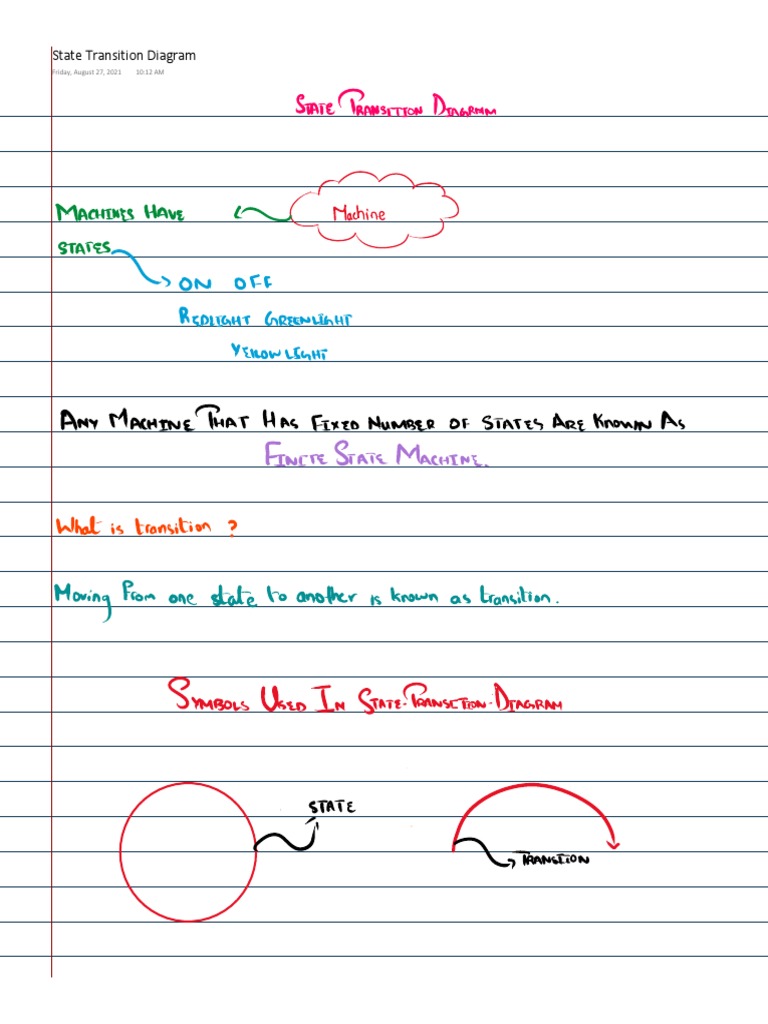 State Transition Diagram
Friday, August 27, 2021 10:12 AM
STATE TRANSITION DIAGRAM
MACHINES HAVE Machine
STATES
ON OFF
REDLIGHT GREENLIGHT
YELLOWLIGHT
ANY MACHINE THAT HAS FIXED NUMBER OF STATES ARE KNOWN AS
FINITE STATE MACHINE.
What is transition ?
Moving from one state to another is known as transition.
SYMBOLS USED IN STATE-TRANSITION-DIAGRAM
STATE
TRANSTION